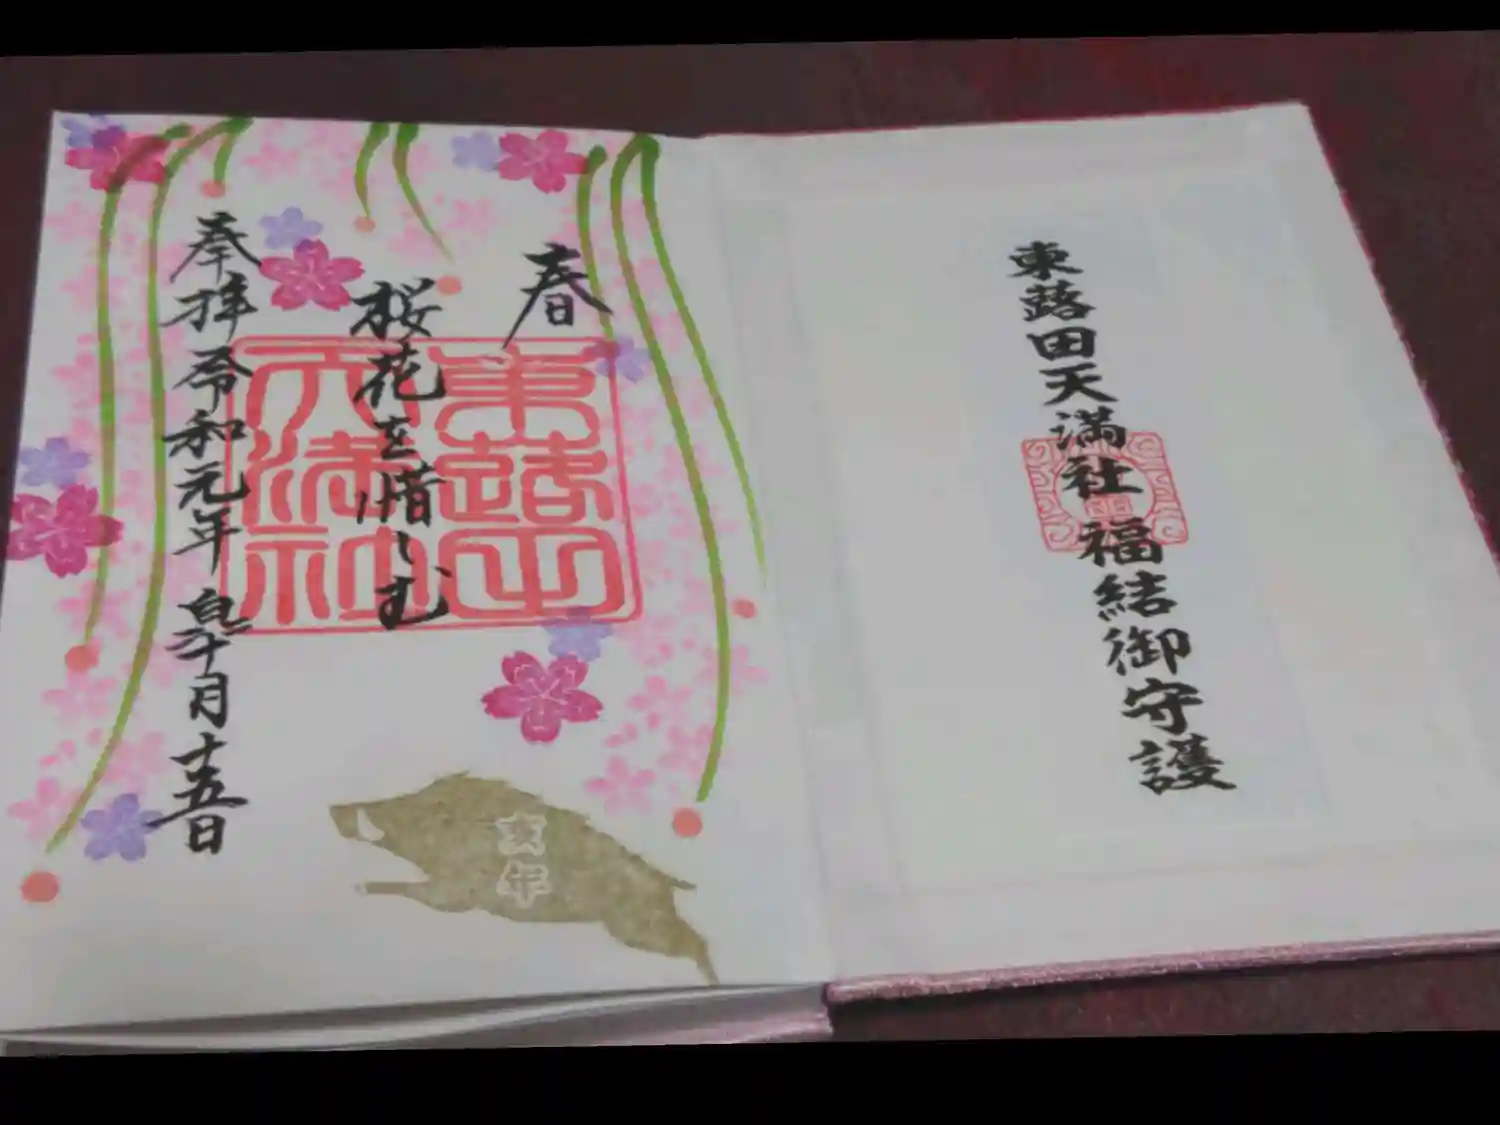 東蕗田天満社福結御守護
春
桜花を惜しむ
東蕗田
天満社
奉拝令和元年皐月十五日
亥年